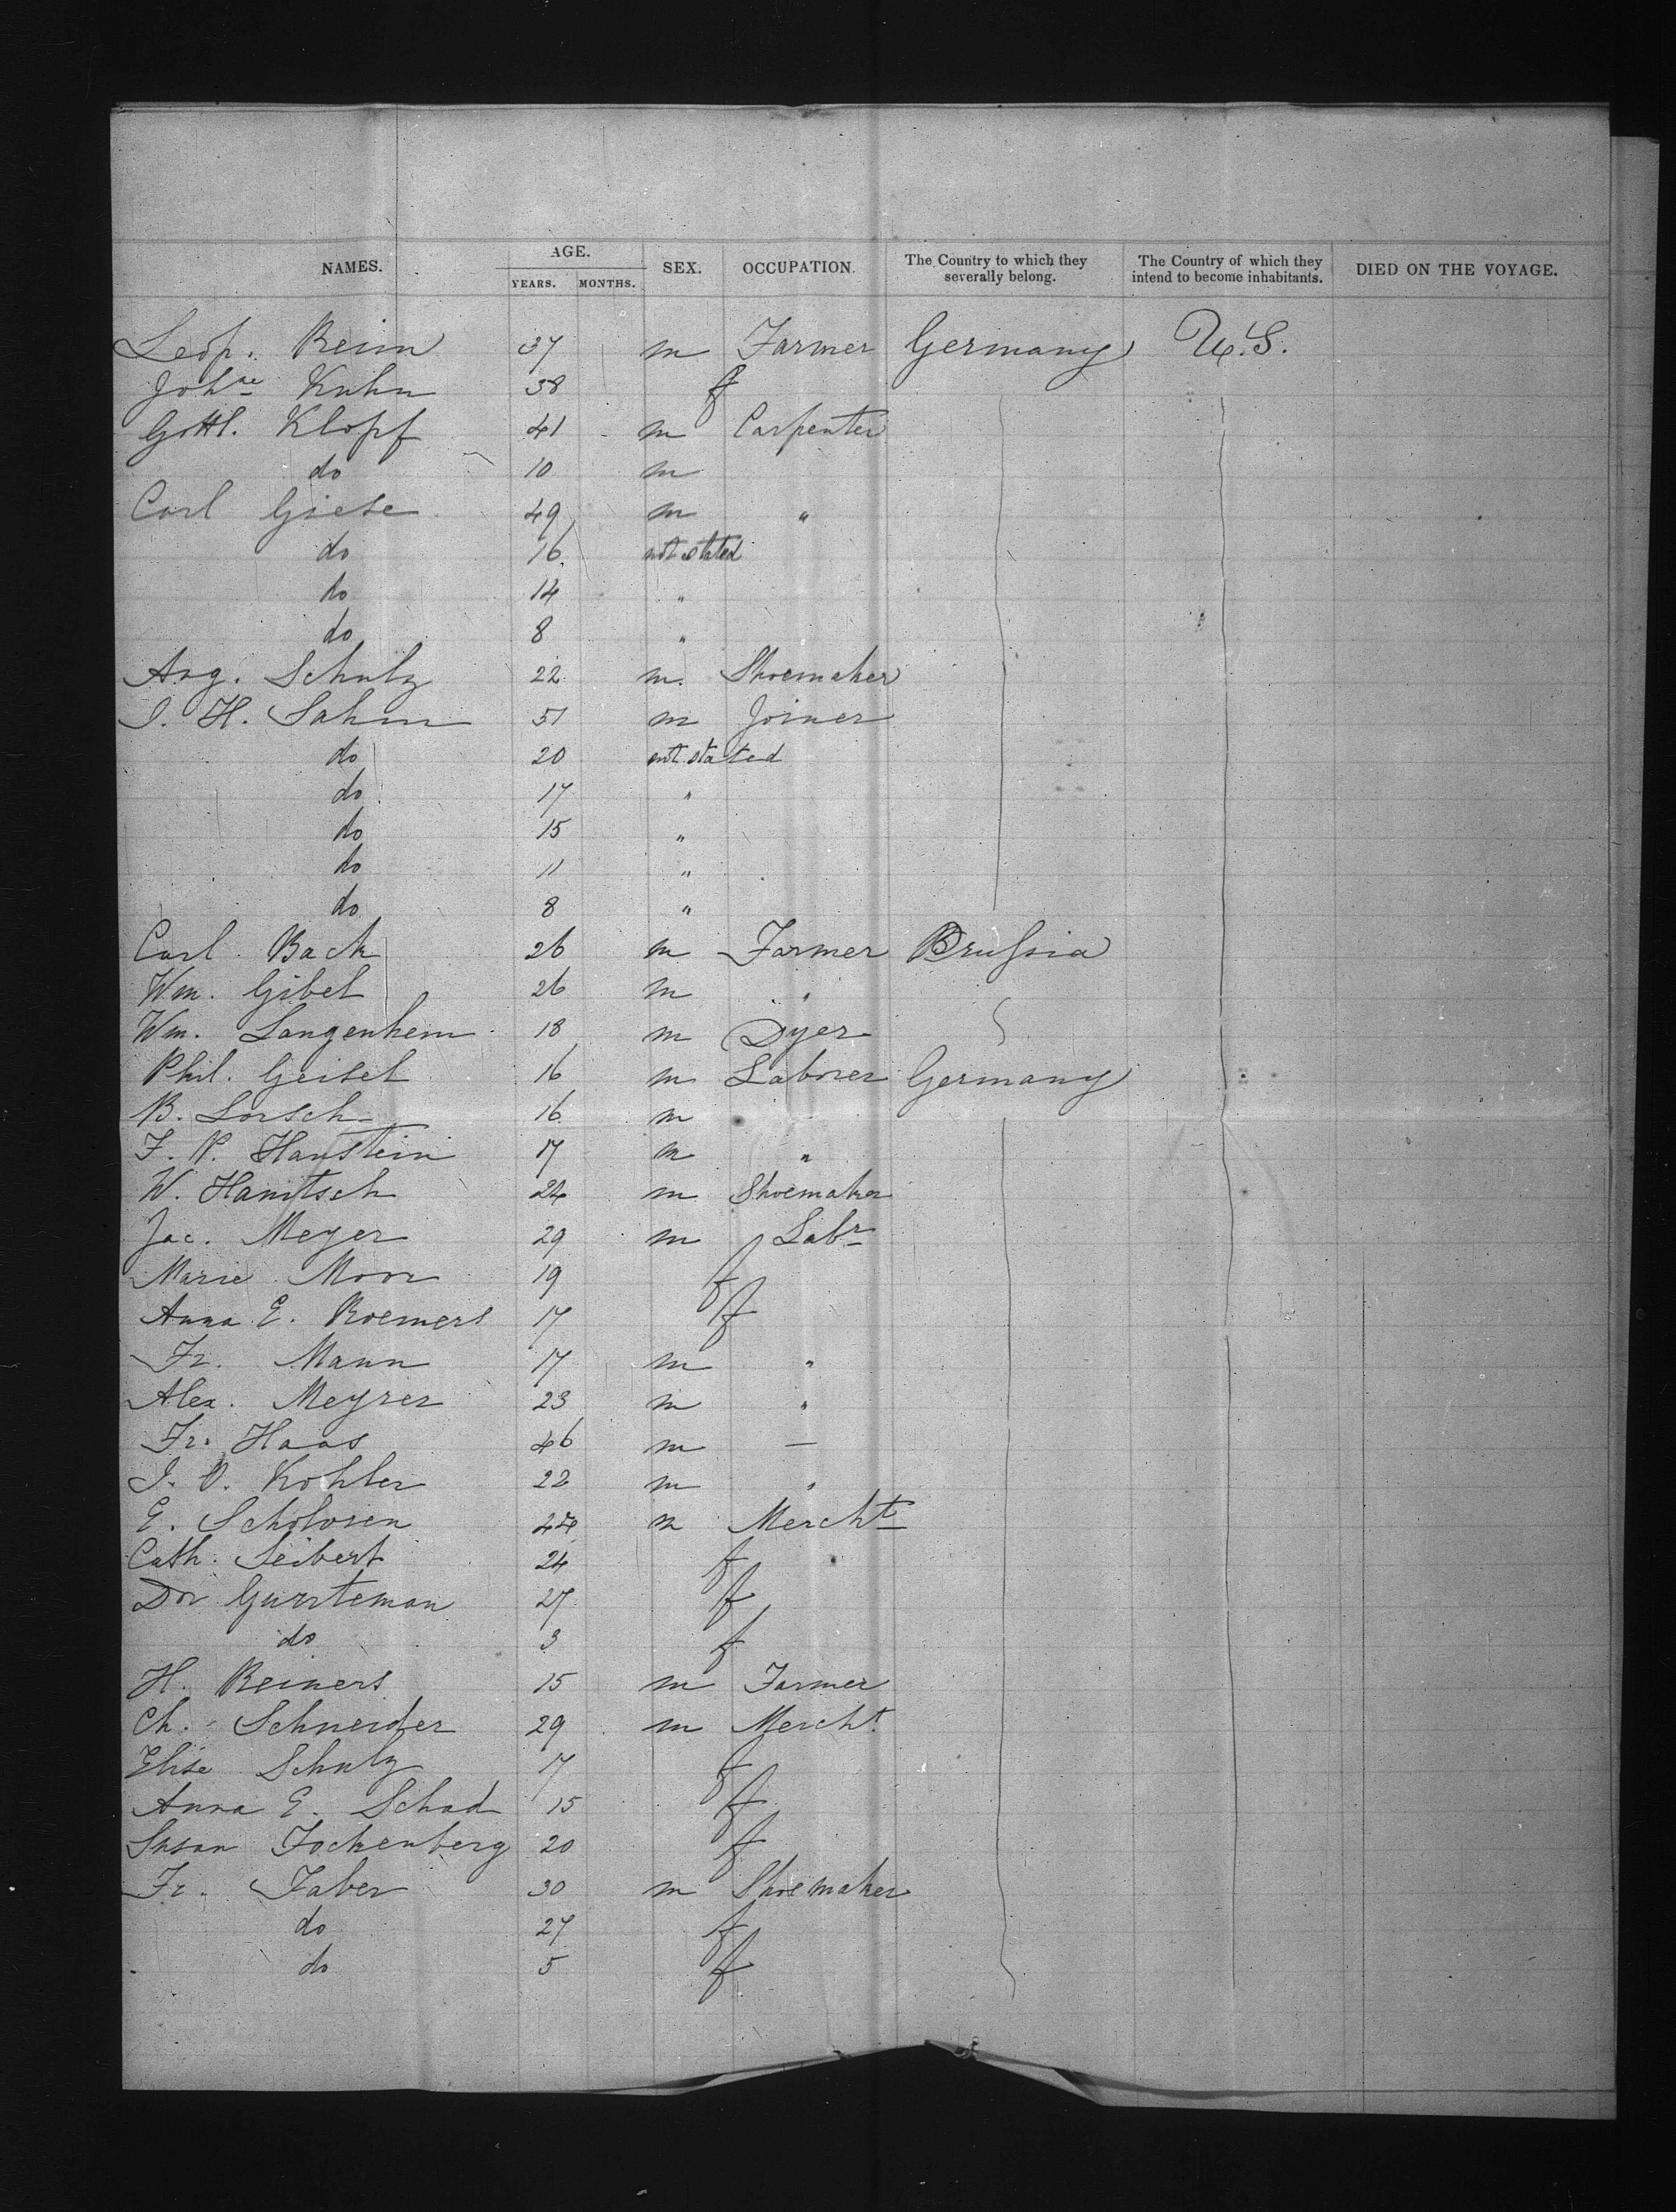 NAMES. AGE. YEARS. MONTHS. SEX. OCCUPATION. The Country to which they severally belong. The Country of which they intend to become inhabitants. DIED ON THE VOYAGE.
Leop. Reim 37 m Farmer Germany U.S.
Johne Kuhn 38 f
Gottl. Klopf 41 m Carpenter
do 10 m
Carl Giese 49 m "
do 16 not stated
do 14 "
do 8 "
Aug. Schulz 22 m. Shoemaker
J. H. Sahm 51 m Joiner
do 20 not stated
do 17 "
do 15 "
do 11 "
do 8 "
Carl Back 26 m Farmer Prussia
Wm. Gibel 26 m "
Wm. Langenheim 18 m Dyer
Phil. Geisel 16 m Laborer Germany
B. Lorsch 16 m
F. P. Hanstein 17 m "
W. Hamtsch 24 m Shoemaker
Jac. Meyer 29 m Labr
Marie Moor 19 f
Anna E. Roemers 17 f
Fr. Mann 17 m "
Alex. Meyrer 23 m "
Fr. Haas 46 m —
J. O. Kohler 22 m "
E. Scholosen 44 m Mercht
Cath. Seibert 24 f
Dor Gursteman 27 f
do 3 f
H. Reiners 15 m Farmer
Ch. Schneider 29 m Mercht
Elise Schulz 17 f
Anna E. Schad 15 f
Susan Fockenberg 20 f
Fr. Faber 30 m Shoemaker
do 27 f
do 5 f